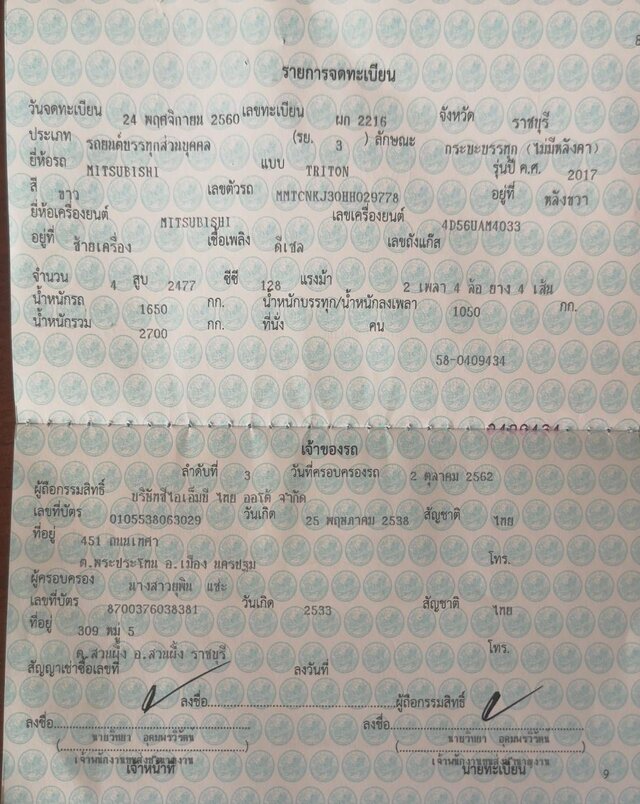 รายการจดทะเบียน
วันจดทะเบียน 24 พฤศจิกายน 2560 เลขทะเบียน ผก 2216 จังหวัด ราชบุรี
ประเภท รถยนต์บรรทุกส่วนบุคคล (รย. 3 ) ลักษณะ กระบะบรรทุก (ไม่มีหลังคา)
ยี่ห้อรถ MITSUBISHI แบบ TRITON รุ่นปี ค.ศ. 2017
สี ขาว เลขตัวรถ MMTCNKJ30HH029778 อยู่ที่ หลังขวา
ยี่ห้อเครื่องยนต์ MITSUBISHI เลขเครื่องยนต์ 4D56UAM4033
อยู่ที่ ซ้ายเครื่อง เชื้อเพลิง ดีเซล เลขถังแก๊ส
จำนวน 4 สูบ 2477 ซีซี 128 แรงม้า 2 เพลา 4 ล้อ ยาง 4 เส้น
น้ำหนักรถ 1650 กก. น้ำหนักบรรทุก/น้ำหนักลงเพลา 1050 กก.
น้ำหนักรวม 2700 กก. ที่นั่ง คน
58-0409434
เจ้าของรถ
ลำดับที่ 3 วันที่ครอบครองรถ 2 ตุลาคม 2562
ผู้ถือกรรมสิทธิ์ บริษัทซีไอเอ็มบี ไทย ออโต้ จำกัด
เลขที่บัตร 0105538063029 วันเกิด 25 พฤษภาคม 2538 สัญชาติ ไทย
ที่อยู่ 451 ถนนเทศา
ต.พระประโทน อ.เมือง นครปฐม โทร.
ผู้ครอบครอง นางสาวยุพิน แซะ
เลขที่บัตร 8700376038381 วันเกิด 2533 สัญชาติ ไทย
ที่อยู่ 309 หมู่ 5
ต.สวนผึ้ง อ.สวนผึ้ง ราชบุรี โทร.
สัญญาเช่าซื้อเลขที่ ลงวันที่
ลงชื่อ ผู้ถือกรรมสิทธิ์
ลงชื่อ ลงชื่อ
นายวิทยา นายวิทยา
เจ้าพนักงานขนส่งชำนาญงาน เจ้าพนักงานขนส่งชำนาญงาน
เจ้าหน้าที่ นายทะเบียน
9